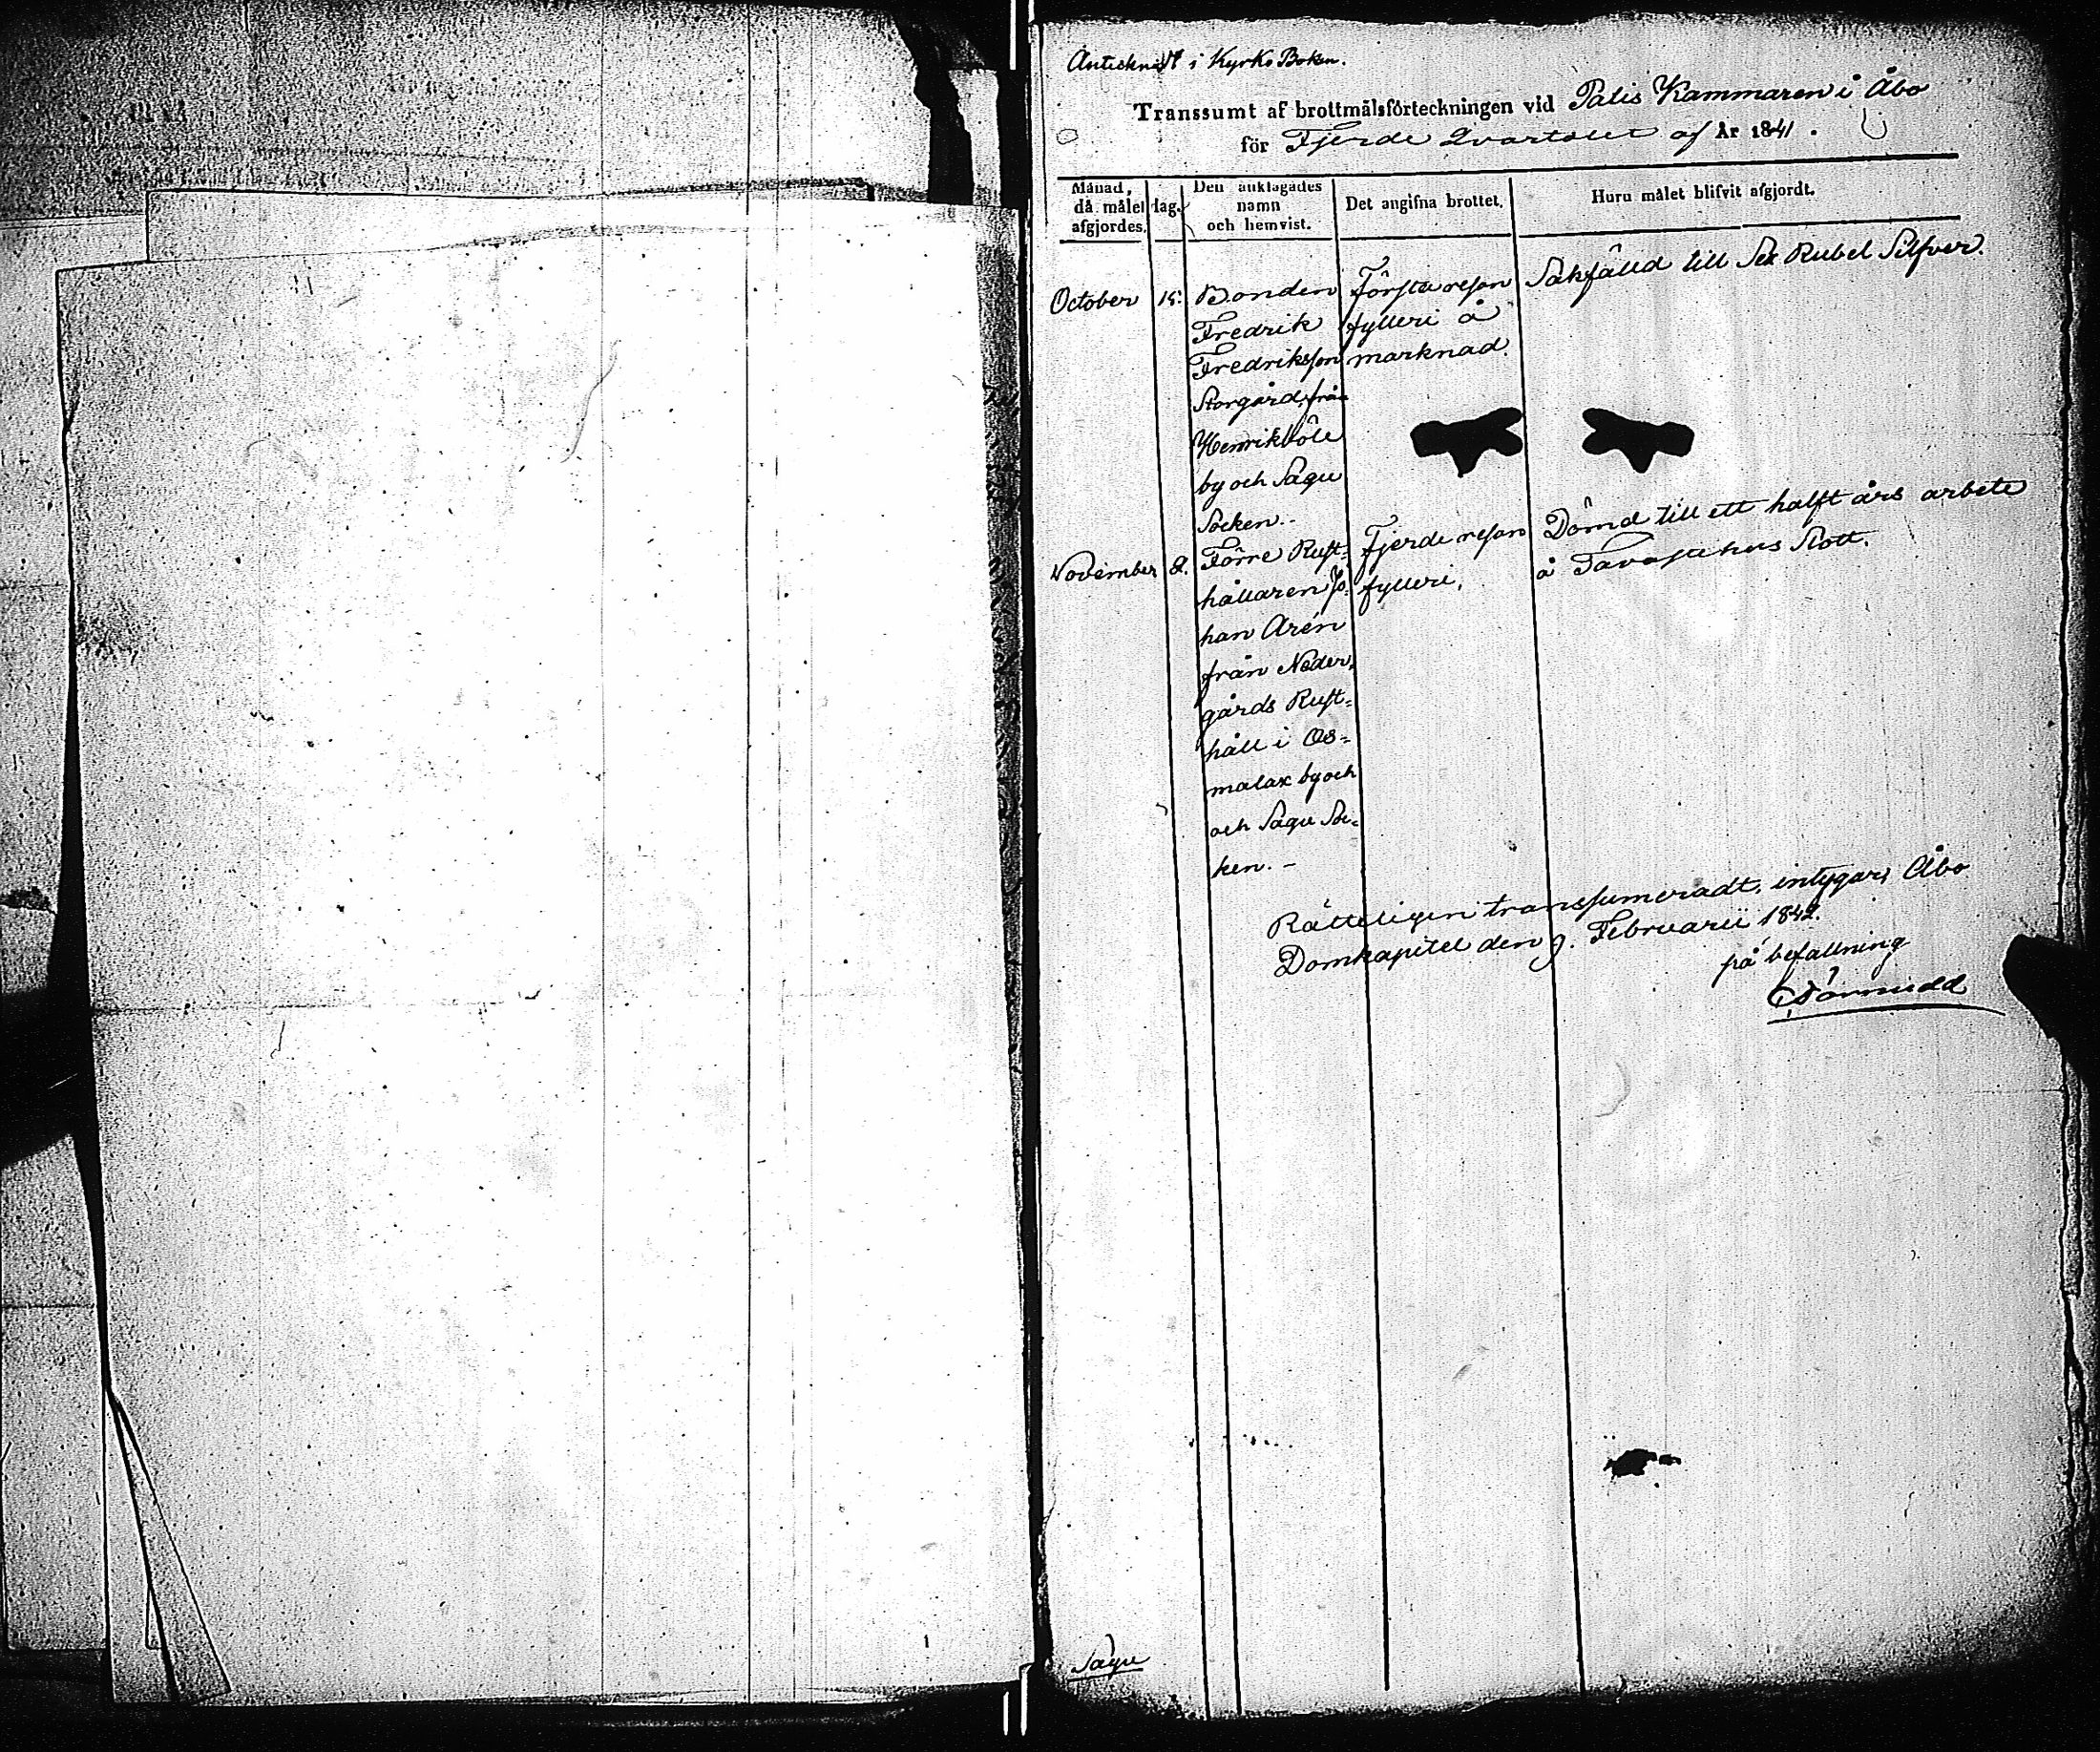 Antecknadt i Kyrko Boken.
Transsumt af brottmålsförteckningen vid Polis Kammaren i Åbo
för Fjerde Qvartalet af År 1841.
Månad, då målet afgjordes.
dag.
Den anklagades namn och hemvist.
Det angifna brottet.
Huru målet blifvit afgjordt.
October 15: Bonden Första resan Sakfälld till Sex Rubel Silfver.
Fredrik fylleri å
Fredriksson marknad.
Storgård, från
Henriksböle
by och Sagu
Socken.-
November 8. Förre Rust= Fjerde resan Dömd till ett halft års arbete
hållaren Jo= fylleri. å Tavastehus Slott.
han Arén
från Neder=
gårds Rust=
håll i Os=
malax by och
och Sagu Soc=
ken. -
Rätteligen transsumeradt, intygar, Åbo
Domkapitel den 9. Februarii 1842.
på befallning
Sagu